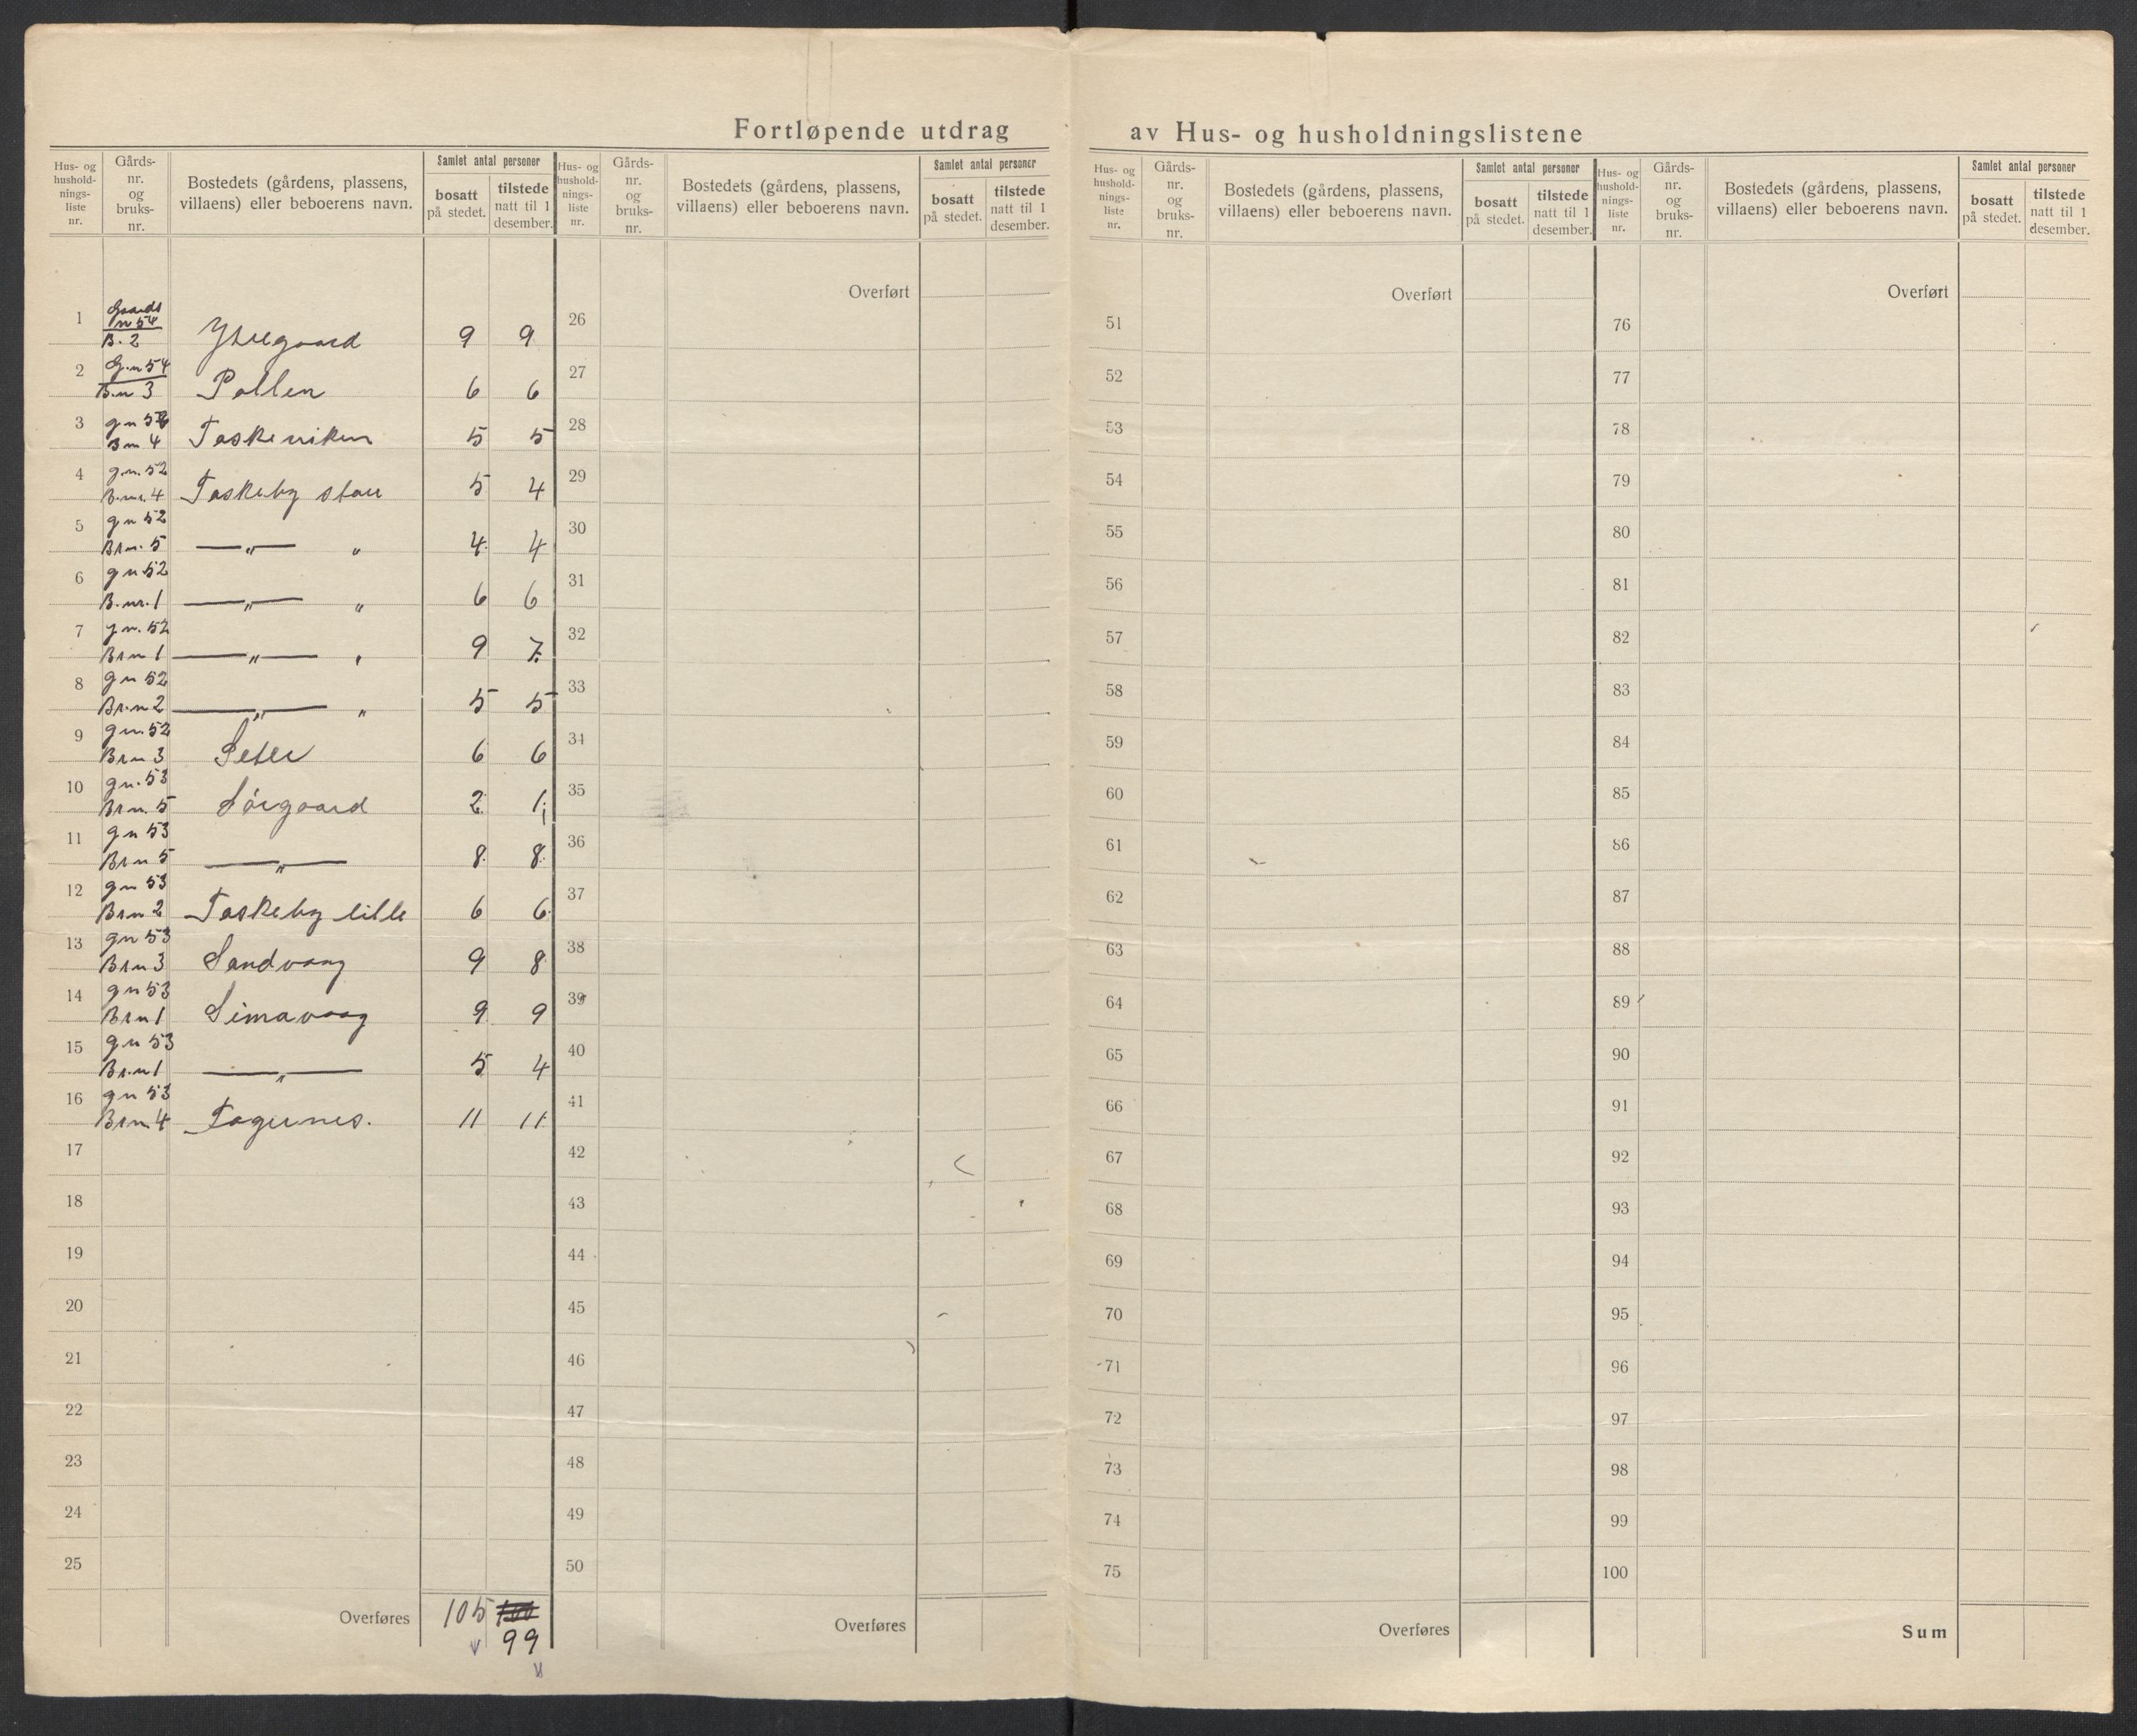 Fortløpende utdrag av Hus- og husholdningslistene
Hus- og husholdnings-liste nr. | Gårds-nr. og bruks-nr. | Bostedets (gårdens, plassens, villaens) eller beboerens navn. | Samlet antal personer bosatt på stedet. | tilstede natt til 1 desember.
Hus- og hushold-nings-liste nr. | Gårds-nr. og bruks-nr. | Bostedets (gårdens, plassens, villaens) eller beboerens navn. | Samlet antal personer bosatt på stedet. | tilstede natt til 1 desember.
Hus- og hushold-nings-liste nr. | Gårds-nr. og bruks-nr. | Bostedets (gårdens, plassens, villaens) eller beboerens navn. | Samlet antal personer bosatt på stedet. | tilstede natt til 1 desember.
Hus- og hushold-nings-liste nr. | Gårds-nr. og bruks-nr. | Bostedets (gårdens, plassens, villaens) eller beboerens navn. | Samlet antal personer bosatt på stedet. | tilstede natt til 1 desember.
Overført Overført Overført
1 Gaards n 54 B. 2 Ytregaard 9 9 26 51 76
2 G.n 54 B.n 3 Pollen 6 6 27 52 77
3 gn 52 Bn 4 Taskeviken 5 5 28 53 78
4 gn. 52 B.nr. 4 Taskeby store 5 4 29 54 79
5 gn 52 Brn. 5 —„— „ 4 4 30 55 80
6 gn 52 B.nr. 1 —„— „ 6 6 31 56 81
7 gn. 52 Brn 1 —„— „ 9 7 32 57 82
8 gn 52 Br.n 2 —„— „ 5 5 33 58 83
9 gn 52 Brn 3 Seter 6 6 34 59 84
10 gn. 53 Brn. 5 Sørgaard 2 1 35 60 85
11 gn 53 Brn 5 —„— 8 8 36 61 86
12 gn 53 Brn 2 Taskeby lille 6 6 37 62 87
13 gn 53 Brn 3 Sandvang 9 8 38 63 88
14 gn 53 Brn 1 Simavaag 9 9 39 64 89
15 gn 53 Br.n 1 —„— 5 4 40 65 90
16 gn 53 Brn. 4 Fagernes. 11 11 41 66 91
17 42 67 92
18 43 68 93
19 44 69 94
20 45 70 95
21 46 71 96
22 47 72 97
23 48 73 98
24 49 74 99
25 50 75 100
Overføres 105 100 Overføres Overføres Sum
99